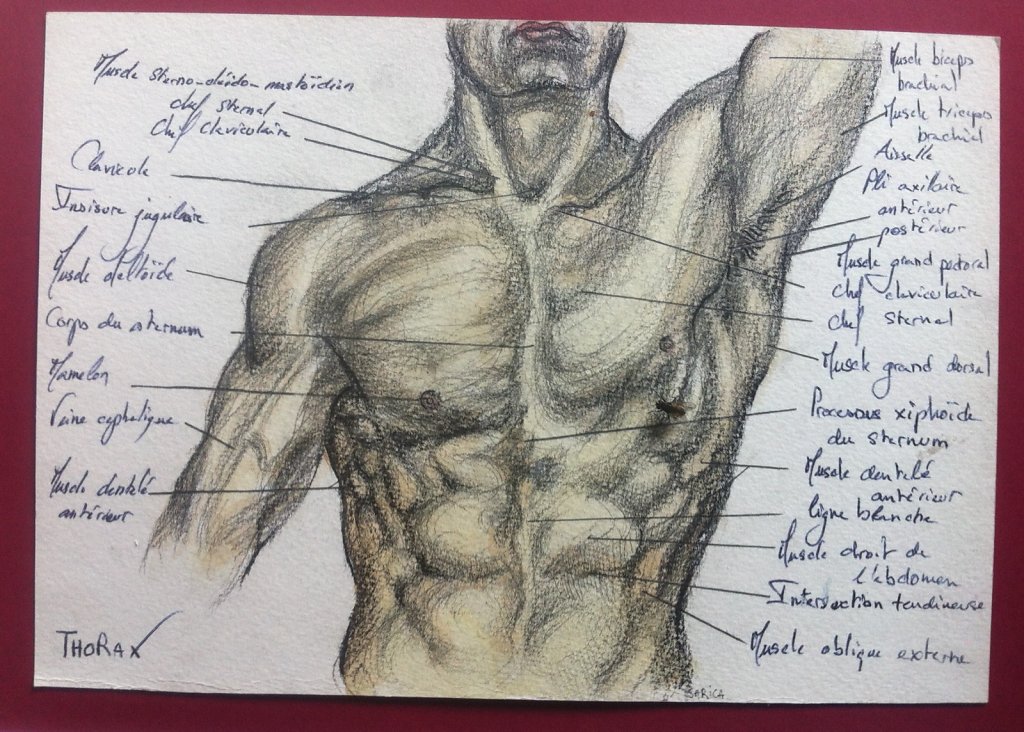 Muscle sterno-cléido-mastoïdien
chef sternal
chef claviculaire
Clavicule
Insisure jugulaire
Muscle deltoïde
Corps du sternum
Mamelon
Veine cephalique
Muscle dentelé
antérieur
THORAX
Muscle biceps
brachial
Muscle triceps
brachial
Aisselle
Pli axilaire
antérieur
postérieur
Muscle grand pectoral
chef claviculaire
chef sternal
Muscle grand dorsal
Processus xiphoïde
du sternum
Muscle dentelé
antérieur
ligne blanche
Muscle droit de
l'abdomen
Intersection tendineuse
Muscle oblique externe
SARICA